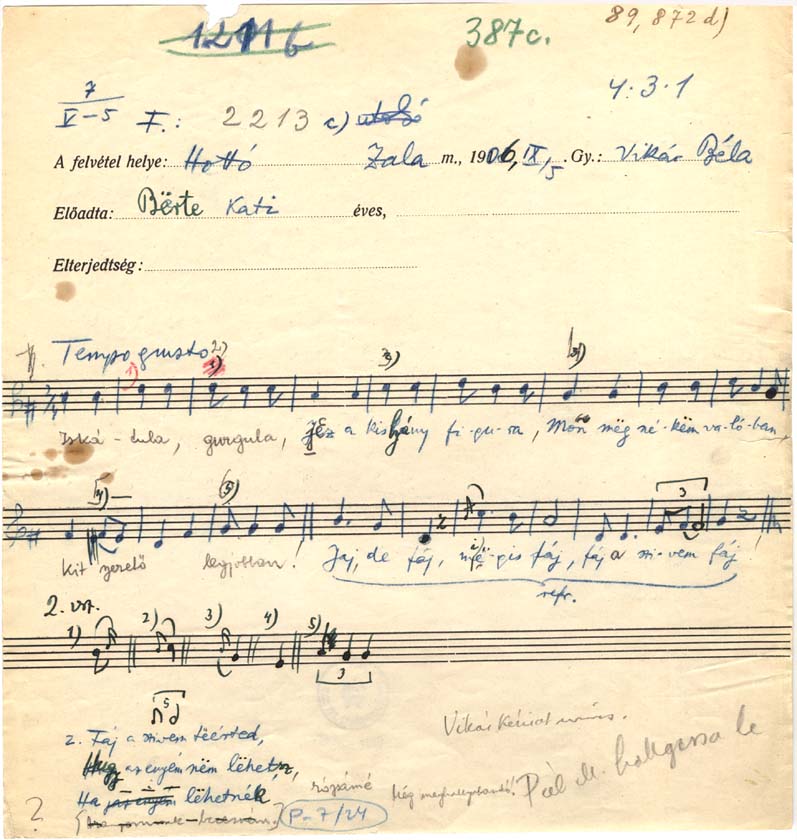 1211 b 387c. 89, 872 d)
7
V-5 F.: 2213 c) utolsó 4.3.1
A felvétel helye: Hottó Zala m., 1906, IX/5. Gy.: Vikár Béla
Előadta: Bërte Kati éves,
Elterjedtség:
Tempo giusto 2)
1) 1) 3) 3)
Iská-tula, gurgula, ez a kislyány fi-gu-ra, Mon mëg né-këm va-ló-ban,
4) 5) 3
Kit szerető legjobban! Jaj, de fáj, mé-gis fáj, fáj a szi-vem fáj!
refr.
2. vsz.
1) 2) 3) 4) 5)
3
5
2. Fáj a szivem tëérted,
Hogy az enyém nëm lëhetsz,
Ha az enyém lëhetnék, rózsámé
P-7/24
?
Vikár kézirat nincs.
Még meghallgatandó! Pál M. hallgassa le